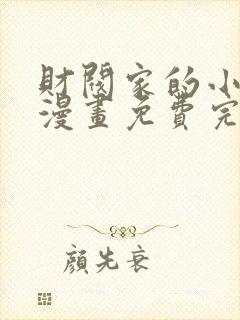 財閥家的小
漫畫免費完
顏先衰